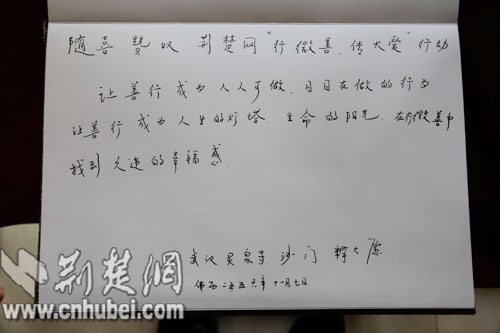 随喜赞叹 荆楚网“行微善，传大爱”行动
让善行成为人人可做，日日在做的行为
让善行成为人生的灯塔，生命的阳光。在行微善中
找到久违的幸福感.
武汉灵泉寺 沙门 释大愿
佛历二五五六年十一月七日
荆楚网
www.cnhubei.com